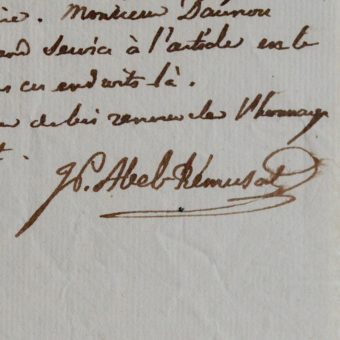 Monsieur Daunou
service à l'article en le
ces endroits là.
de lui renouveler l'hommage
JP. Abel-Rémusat